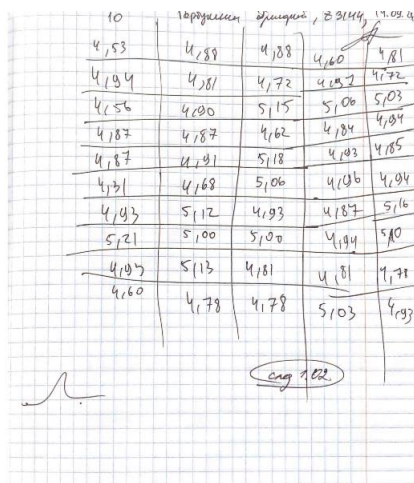 10 , 83144,
4,53 4,88 4,88 4,60 4,81
4,94 4,81 4,72 4,97 4,72
4,56 4,90 5,15 5,06 5,03
4,87 4,87 4,62 4,84 4,94
4,87 4,91 5,18 4,93 4,85
4,31 4,68 5,06 4,96 4,94
4,93 5,12 4,93 4,87 5,16
5,21 5,00 5,00 4,94
5,13 4,81 4,81 4,78
4,60 4,78 4,78 5,03 4,93